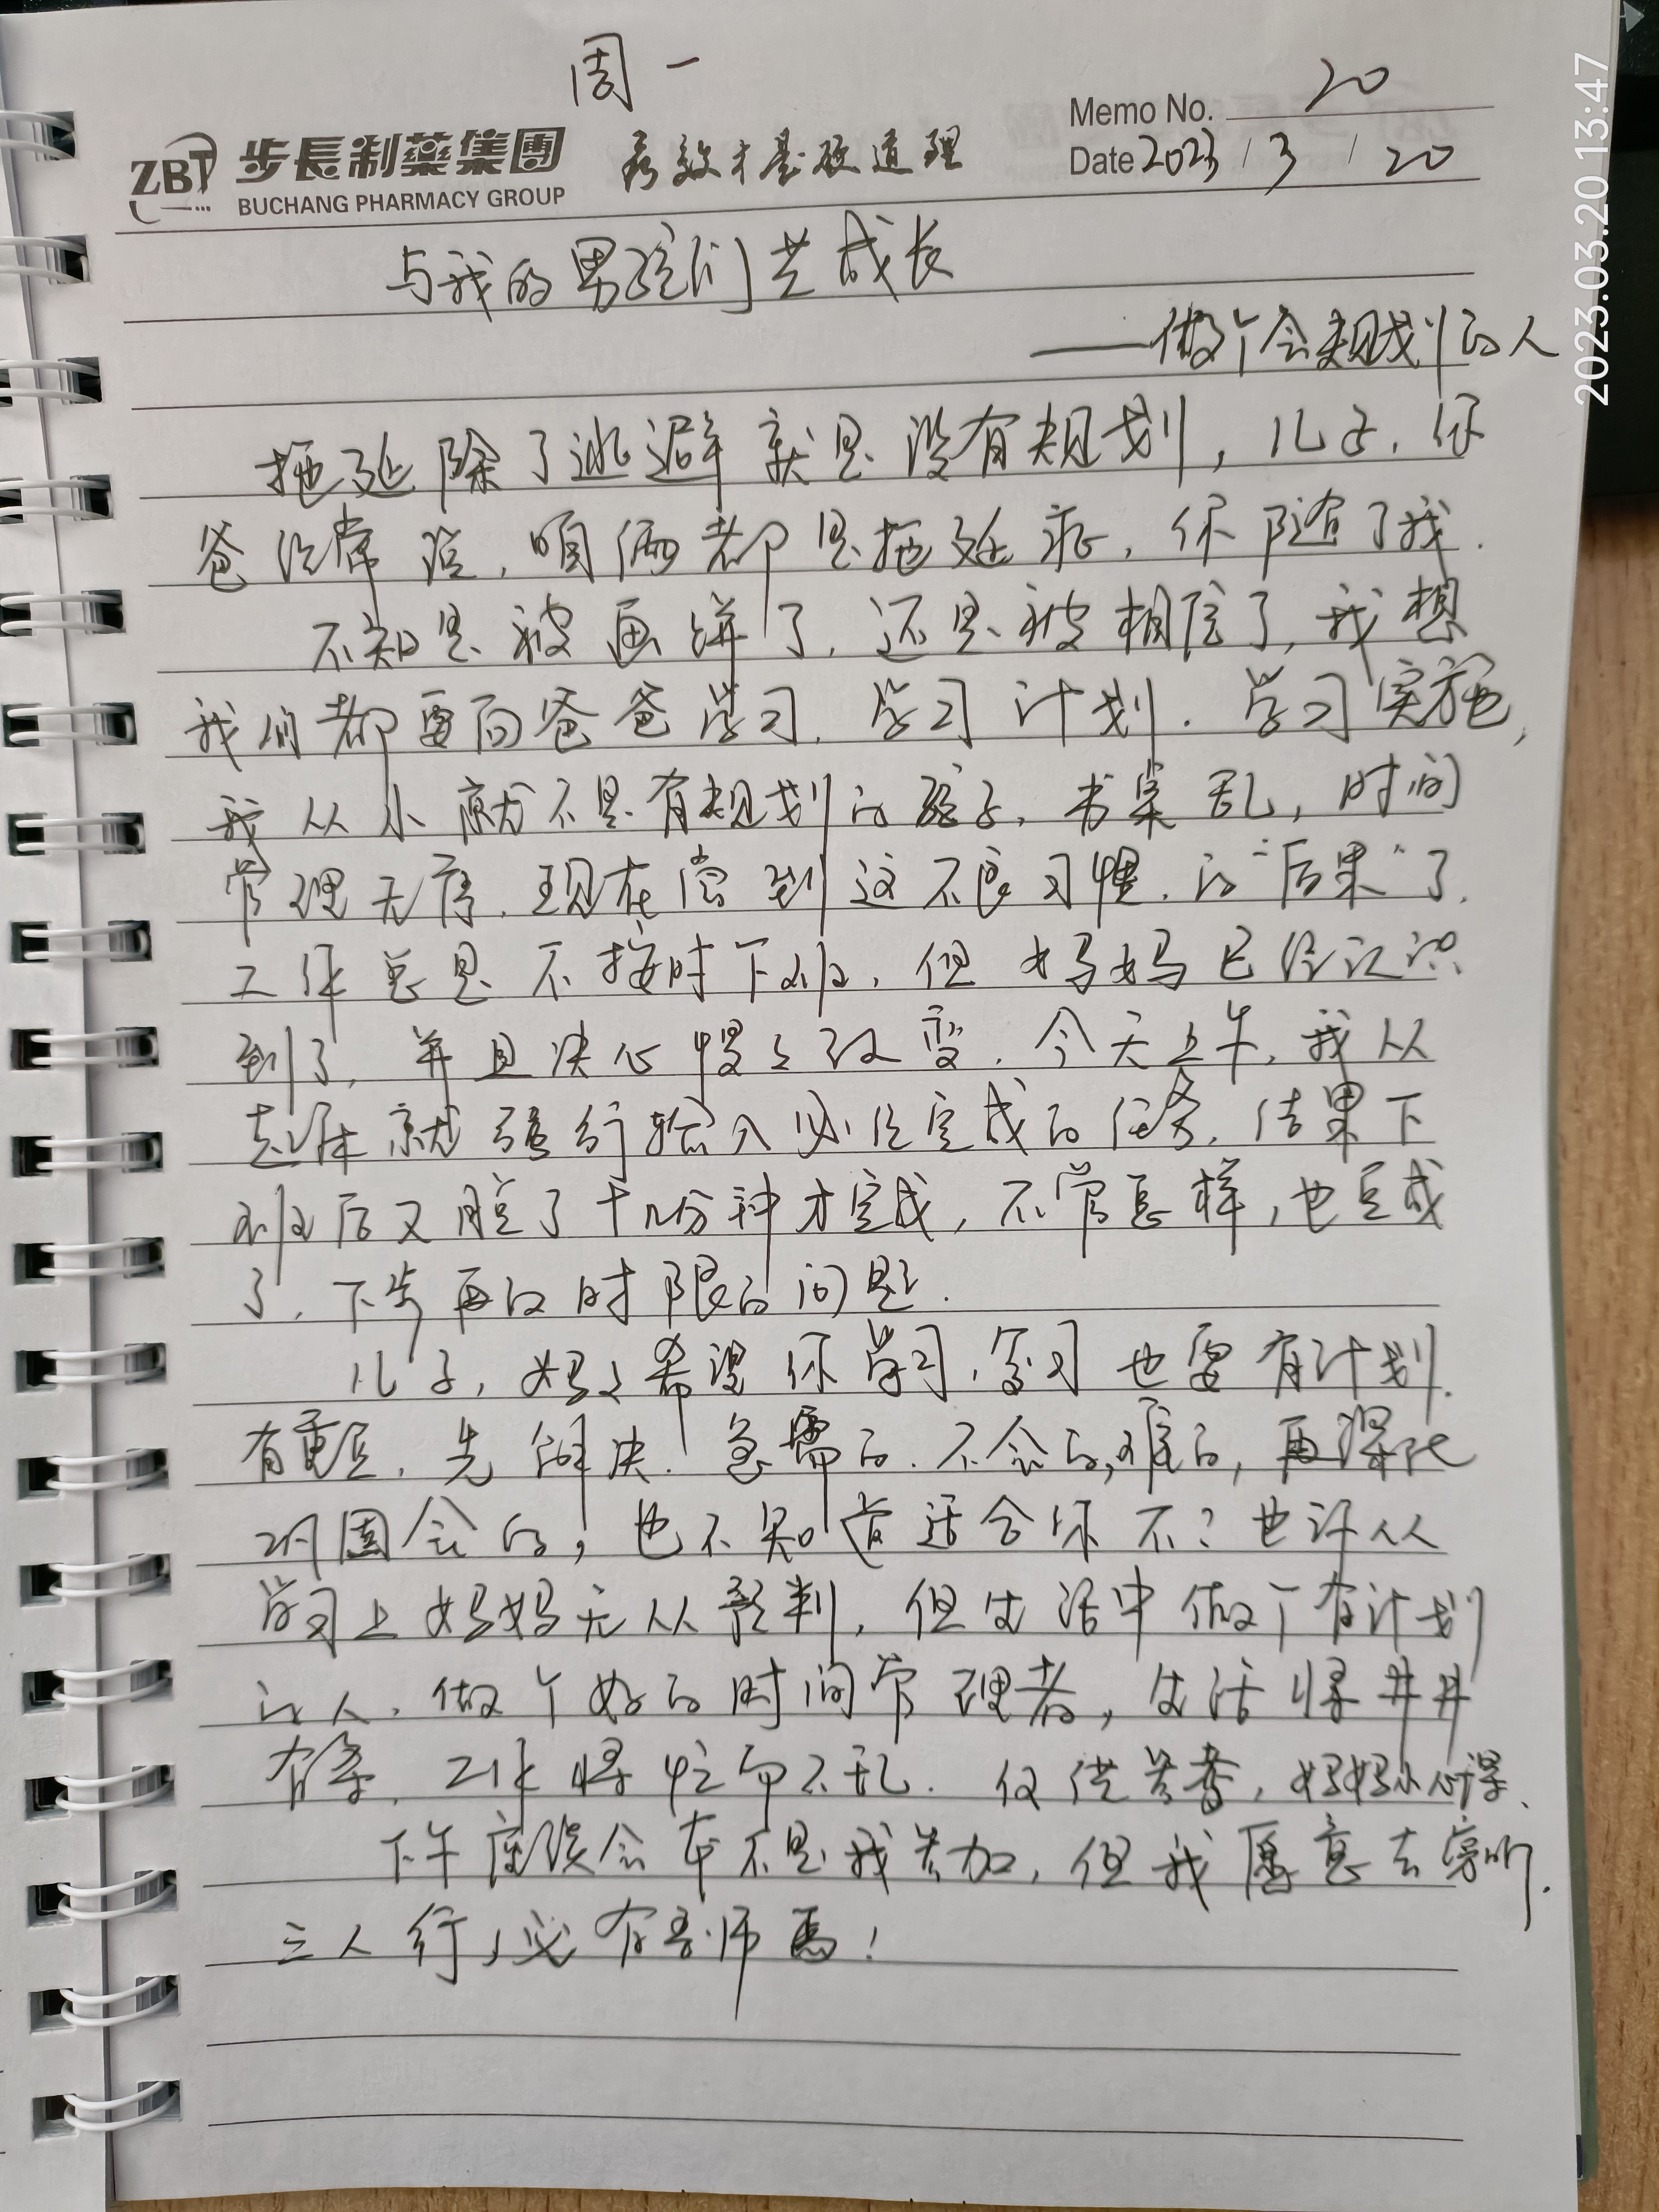 周一
Memo No. 20
ZBT 步長制藥集團 疗效才是硬道理
Date 2023 / 3 / 20
BUCHANG PHARMACY GROUP
与我的男孩们共成长
——做个会规划的人
拖延除了逃避就是没有规划，儿子，你
爸经常说，咱俩都是拖延症，你随了我.
不知是被画饼了，还是被相信了，我想
我们都要向爸爸学习，学习计划. 学习实施，
我从小就不是有规划的孩子，书桌乱，时间
管理无序. 现在尝到这不良习惯. 的"后果"了.
工作总是不按时下班，但妈妈已经认识
到了，并且决心慢々改变. 今天上午，我从
起床就强行输入必须完成的任务，结果下
班后又脱了十几分种才完成，不管怎样，也完成
了，下步再的时限的问题.
儿子，妈々希望你学习，复习也要有计划.
有重点，先解决. 急需的. 不会的，难的，再深化
巩固会的，也不知道适合你不？也许从
学习上妈妈无从预判，但生活中做个有计划
的人. 做个好的时间管理者，生活将井井
有条，工作将忙而不乱. 仅供参考，妈妈小心得.
下午座谈会本不是我参加，但我愿意去旁听.
三人行，必有吾师焉！
2023.03.20 13:47